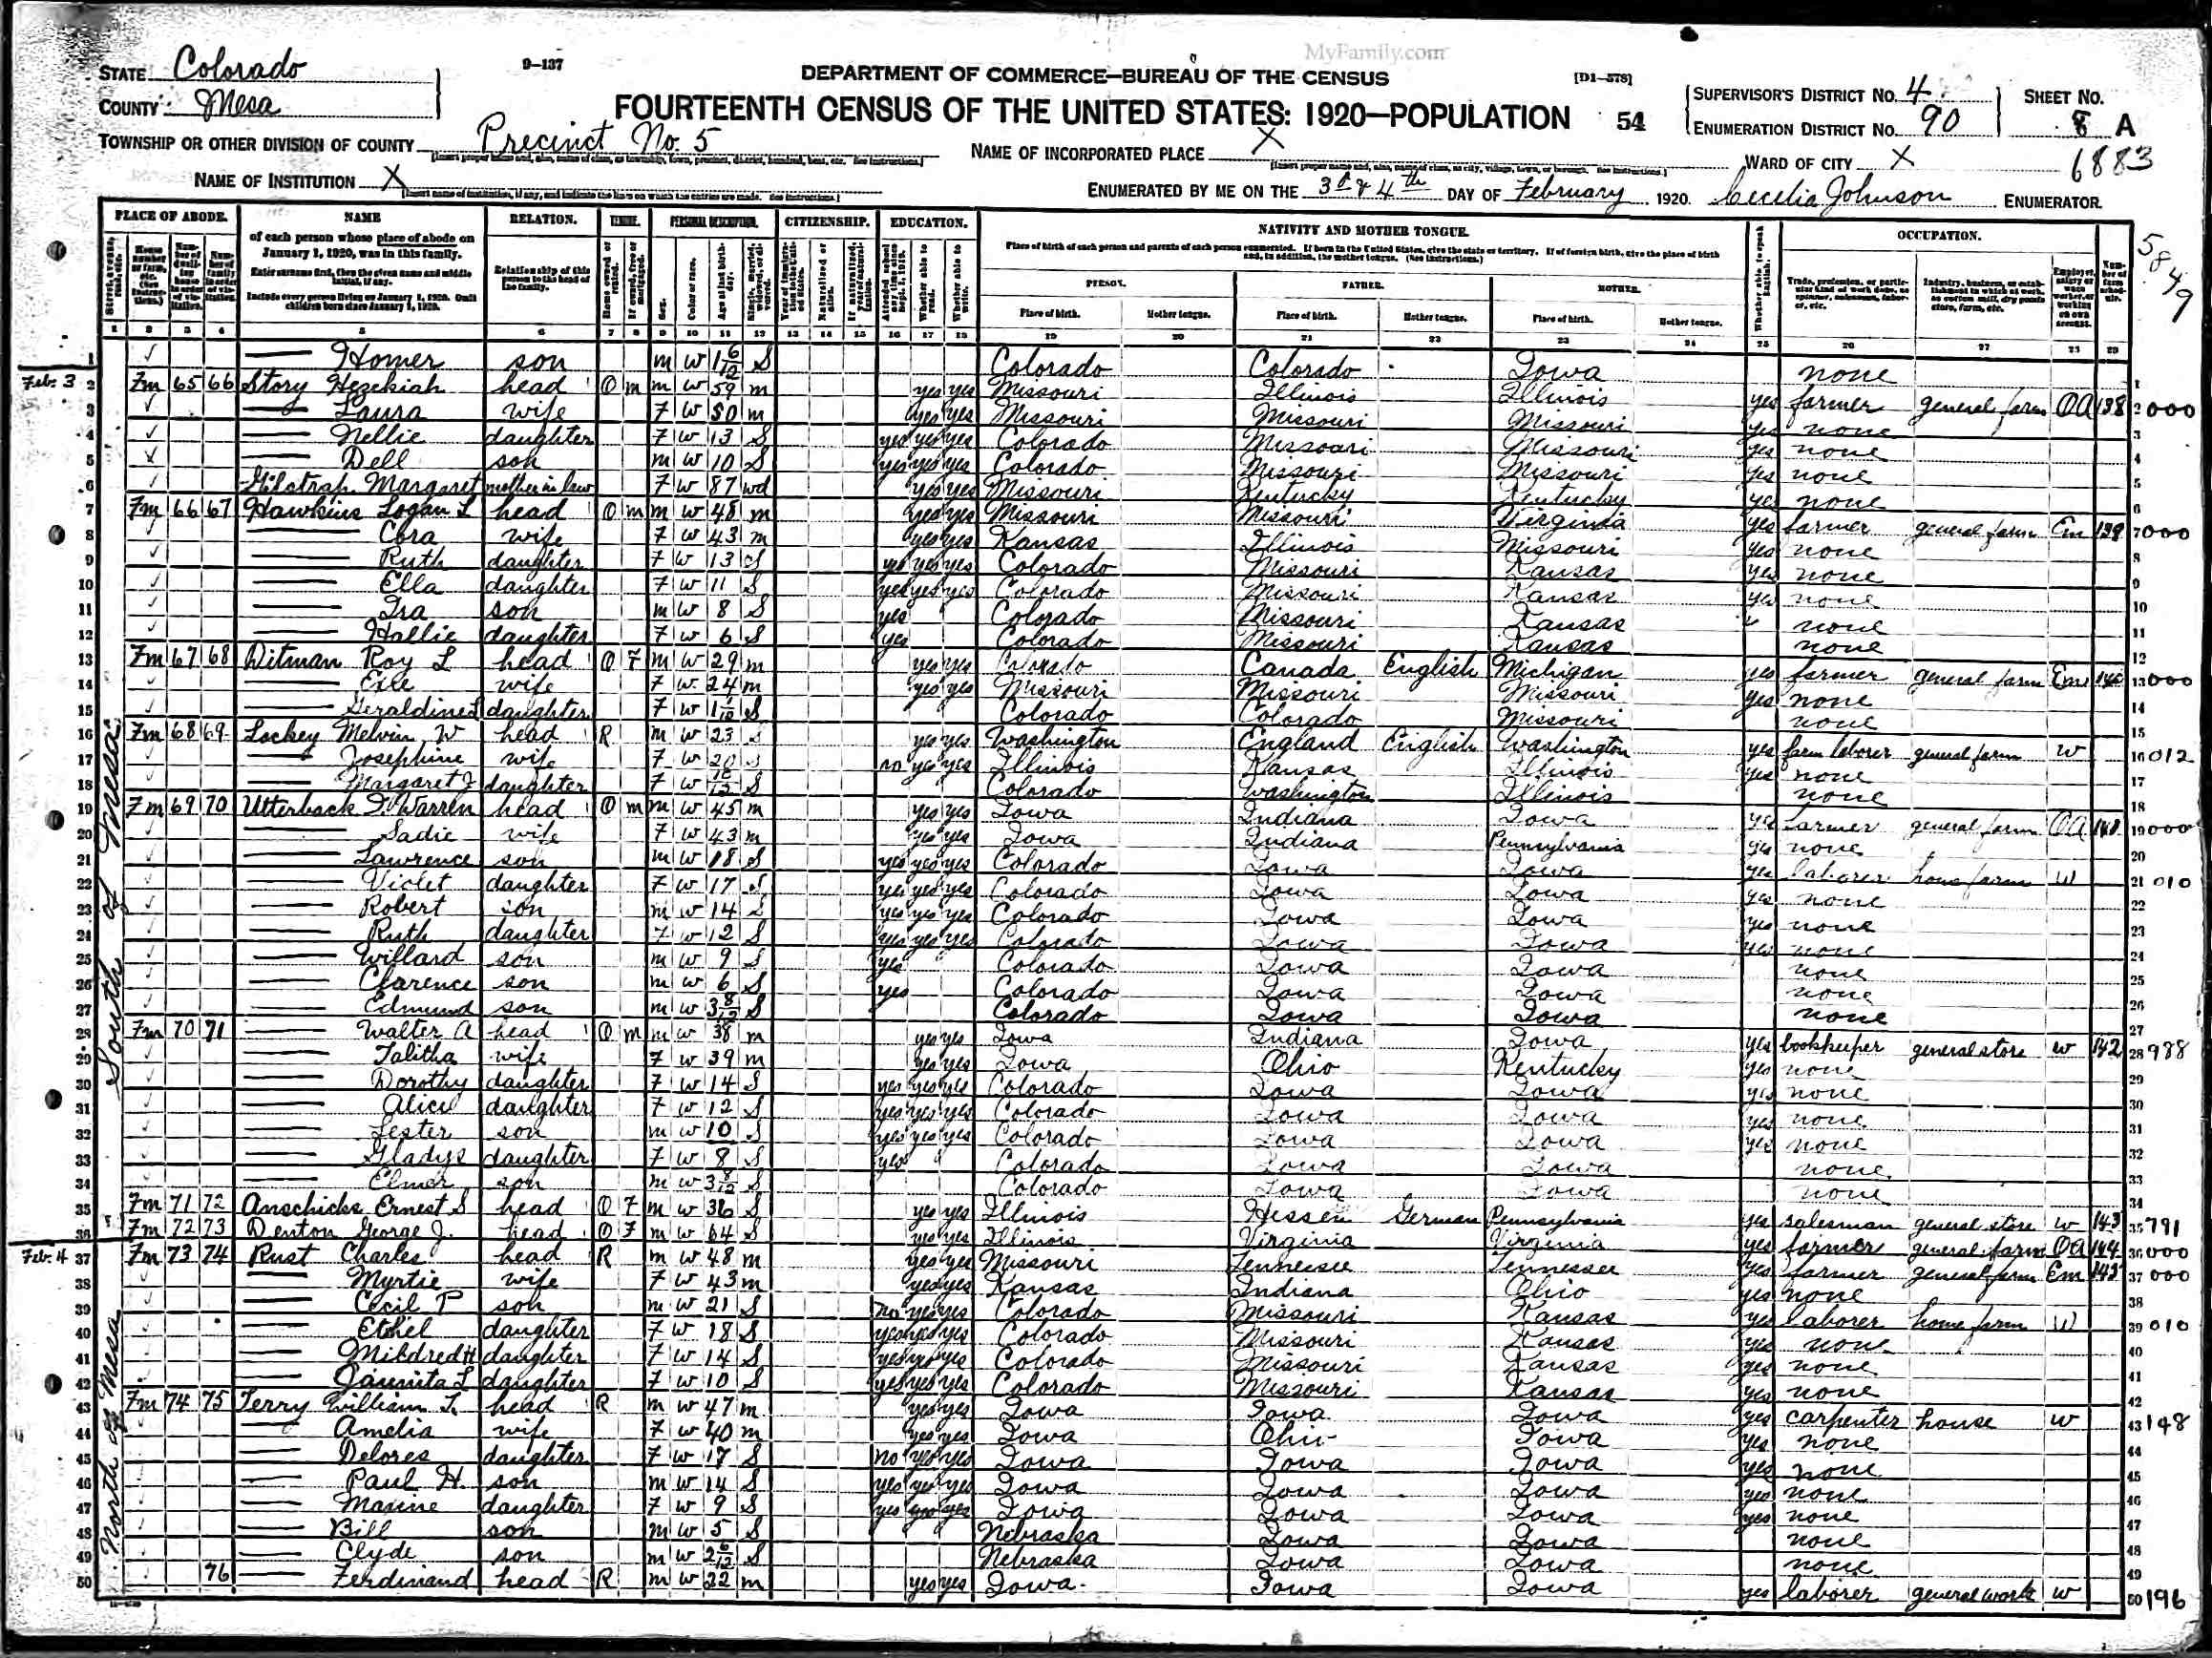 MyFamily.com
STATE Colorado
9-137
DEPARTMENT OF COMMERCE—BUREAU OF THE CENSUS
[D1-578]
COUNTY Mesa
FOURTEENTH CENSUS OF THE UNITED STATES: 1920—POPULATION
54
SUPERVISOR'S DISTRICT NO. 4
SHEET NO.
ENUMERATION DISTRICT NO. 90
8 A
TOWNSHIP OR OTHER DIVISION OF COUNTY Precinct No. 5
NAME OF INCORPORATED PLACE X
WARD OF CITY X
6883
NAME OF INSTITUTION X
ENUMERATED BY ME ON THE 3d & 4th DAY OF February 1920. Cecelia Johnson ENUMERATOR
5849
PLACE OF ABODE. NAME RELATION. TENURE. PERSONAL DESCRIPTION. CITIZENSHIP. EDUCATION. NATIVITY AND MOTHER TONGUE. OCCUPATION.
of each person whose place of abode on January 1, 1920, was in this family.
Enter surname first, then the given name and middle initial, if any.
Include every person living on January 1, 1920. Omit children born since January 1, 1920.
Relationship of this person to the head of the family.
Place of birth of each person and parents of each person enumerated. If born in the United States, give the state or territory. If of foreign birth, give the place of birth and, in addition, the mother tongue. (See instructions.)
PERSON. FATHER. MOTHER.
Place of birth. Mother tongue. Place of birth. Mother tongue. Place of birth. Mother tongue.
1 2 3 4 5 6 7 8 9 10 11 12 13 14 15 16 17 18 19 20 21 22 23 24 25 26 27 28 29
South of Mesa
North of Mesa
1 Homer son m w 1 6/12 S Colorado Colorado Iowa none 1
Feb. 3 2 Fm 65 66 Story Hezekiah head O m m w 59 m yes yes Missouri Illinois Illinois yes farmer general farm OA 138 2 000
3 Laura wife F w 50 m yes yes Missouri Missouri Missouri yes none 3
4 Nellie daughter F w 13 S yes yes yes Colorado Missouri Missouri yes none 4
5 Dell son m w 10 S yes yes yes Colorado Missouri Missouri yes none 5
6 Gilstrap Margaret mother in law F w 87 wd yes yes Missouri Kentucky Kentucky yes none 6
7 Fm 66 67 Hawkins Logan L head O m m w 48 m yes yes Missouri Missouri Virginia yes farmer general farm Em 139 7 000
8 Cora wife F w 43 m yes yes Kansas Illinois Missouri yes none 8
9 Ruth daughter F w 13 S yes yes yes Colorado Missouri Kansas yes none 9
10 Ella daughter F w 11 S yes yes yes Colorado Missouri Kansas yes none 10
11 Ira son m w 8 S yes Colorado Missouri Kansas none 11
12 Hallie daughter F w 6 S yes Colorado Missouri Kansas none 12
13 Fm 67 68 Ditman Roy L head O F m w 29 m yes yes Colorado Canada English Michigan yes farmer general farm Em 140 13 000
14 wife F w 24 m yes yes Missouri Missouri Missouri yes none 14
15 Geraldine L daughter F w S Colorado Colorado Missouri none 15
16 Fm 68 69 Lockey Melvin W head R m w 23 yes yes Washington England English Washington yes farm laborer general farm w 16 012
17 Josephine wife F w 20 no yes yes Illinois Kansas Illinois yes none 17
18 Margaret J daughter F w S Colorado Washington Illinois none 18
19 Fm 69 70 Utterback Warren head O m m w 45 m yes yes Iowa Indiana Iowa yes farmer general farm OA 141 19 000
20 Sadie wife F w 43 m yes yes Iowa Indiana Pennsylvania yes none 20
21 Lawrence son m w 18 S yes yes yes Colorado Iowa Iowa yes laborer home farm w 21 010
22 Violet daughter F w 17 S yes yes yes Colorado Iowa Iowa yes none 22
23 Robert son m w 14 S yes yes yes Colorado Iowa Iowa yes none 23
24 Ruth daughter F w 12 S yes yes yes Colorado Iowa Iowa yes none 24
25 Willard son m w 9 S yes Colorado Iowa Iowa none 25
26 Clarence son m w 6 S yes Colorado Iowa Iowa none 26
27 Edmund son m w 3 8/12 S Colorado Iowa Iowa none 27
28 Fm 70 71 Walter A head O m m w 38 m yes yes Iowa Indiana Iowa yes bookkeeper general store w 142 28 988
29 Talitha wife F w 39 m yes yes Iowa Ohio Kentucky yes none 29
30 Dorothy daughter F w 14 S yes yes yes Colorado Iowa Iowa yes none 30
31 Alice daughter F w 12 S yes yes yes Colorado Iowa Iowa yes none 31
32 Lester son m w 10 S yes yes yes Colorado Iowa Iowa yes none 32
33 Gladys daughter F w 8 S yes Colorado Iowa Iowa none 33
34 Elmer son m w 3 8/12 S Colorado Iowa Iowa none 34
35 Fm 71 72 Anschicks Ernest S head O F m w 36 S yes yes Illinois Hessen German Pennsylvania yes salesman general store w 143 35 791
36 Fm 72 73 Denton George J. head O F m w 64 S yes yes Illinois Virginia Virginia yes farmer general farm OA 144 36 000
Feb. 4 37 Fm 73 74 Rust Charles head R m w 48 m yes yes Missouri Tennessee Tennessee yes farmer general farm Em 145 37 000
38 Myrtie wife F w 43 m yes yes Kansas Indiana Ohio yes none 38
39 Cecil P son m w 21 S no yes yes Colorado Missouri Kansas yes laborer home farm w 39 010
40 Ethel daughter F w 18 S yes yes yes Colorado Missouri Kansas yes none 40
41 Mildred H daughter F w 14 S yes yes yes Colorado Missouri Kansas yes none 41
42 Jaunita L daughter F w 10 S yes yes yes Colorado Missouri Kansas yes none 42
43 Fm 74 75 Terry William T. head R m w 47 m yes yes Iowa Iowa Iowa yes carpenter house w 43 148
44 Amelia wife F w 40 m yes yes Iowa Ohio Iowa yes none 44
45 Delores daughter F w 17 S no yes yes Iowa Iowa Iowa yes none 45
46 Paul H. son m w 14 S yes yes yes Iowa Iowa Iowa yes none 46
47 Maxine daughter F w 9 S yes yes yes Iowa Iowa Iowa yes none 47
48 Bill son m w 5 S Nebraska Iowa Iowa none 48
49 Clyde son m w 2 6/12 S Nebraska Iowa Iowa none 49
50 76 Ferdinand head R m w 22 m yes yes Iowa Iowa Iowa yes laborer general work w 50 196